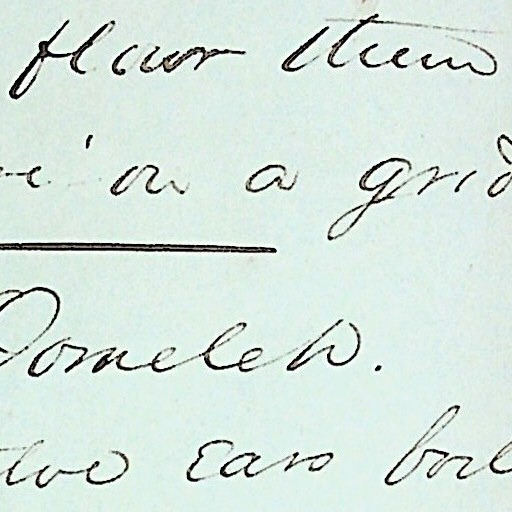 flour them
on a grid
Oomelets.
elve ears boil